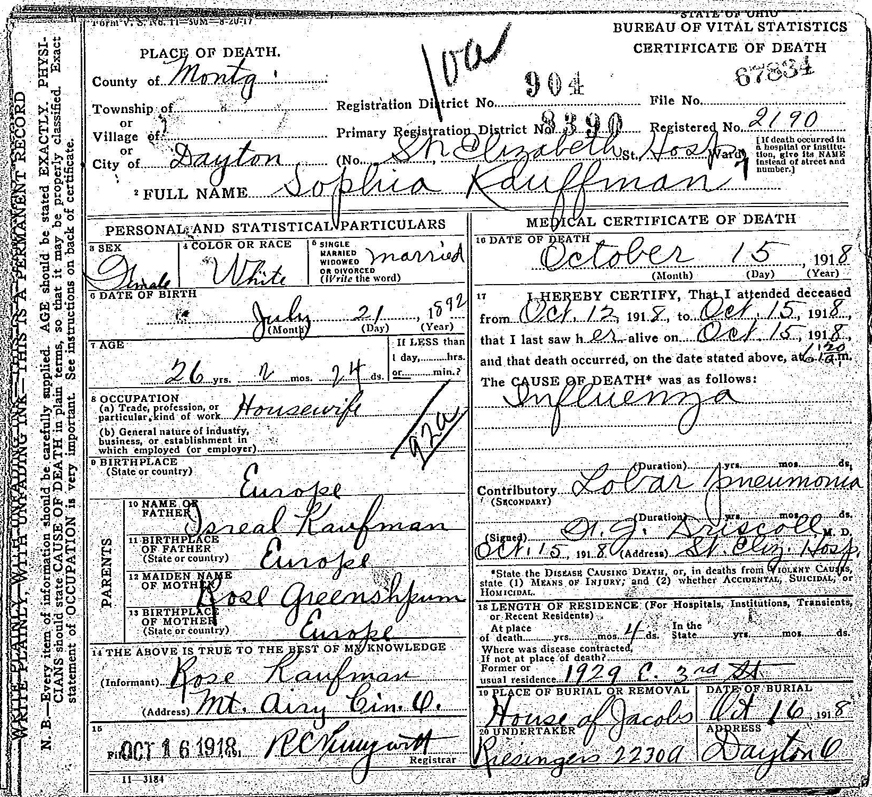 Form V. S. No. 11—50M—8-20-17
STATE OF OHIO
BUREAU OF VITAL STATISTICS
CERTIFICATE OF DEATH
10a
PLACE OF DEATH.
County of Montg.
Township of
or
Village of
or
City of Dayton
Registration District No. 904
File No. 67834
Primary Registration District No. 8390
Registered No. 2190
(No. St. Elizabeth St. Hosp. Ward)
[If death occurred in a hospital or institution, give its NAME instead of street and number.]
2 FULL NAME Sophia Kauffman
PERSONAL AND STATISTICAL PARTICULARS
3 SEX
Female
4 COLOR OR RACE
White
5 SINGLE
MARRIED
WIDOWED
OR DIVORCED
(Write the word)
married
6 DATE OF BIRTH
July 21, 1892
(Month) (Day) (Year)
7 AGE
26 yrs. 2 mos. 24 ds.
If LESS than
1 day,......hrs.
or......min.?
8 OCCUPATION
(a) Trade, profession, or
particular kind of work
Housewife
(b) General nature of industry,
business, or establishment in
which employed (or employer)
92a
9 BIRTHPLACE
(State or country)
Europe
PARENTS
10 NAME OF
FATHER
Isreal Kaufman
11 BIRTHPLACE
OF FATHER
(State or country)
Europe
12 MAIDEN NAME
OF MOTHER
Rose Greenshpum
13 BIRTHPLACE
OF MOTHER
(State or country)
Europe
14 THE ABOVE IS TRUE TO THE BEST OF MY KNOWLEDGE
(Informant) Rose Kaufman
(Address) Mt. Airy Cin. O.
15
OCT 16 1918, 191
Registrar
11—3184
MEDICAL CERTIFICATE OF DEATH
16 DATE OF DEATH
October 15, 1918
(Month) (Day) (Year)
17 I HEREBY CERTIFY, That I attended deceased
from Oct. 12, 1918, to Oct. 15, 1918,
that I last saw her alive on Oct 15, 1918,
and that death occurred, on the date stated above, at m.
The CAUSE OF DEATH* was as follows:
Influenza
(Duration) yrs. mos. ds.
Contributory Lobar pneumonia
(SECONDARY)
(Duration) yrs. mos. ds.
(Signed) Driscoll M. D.
Oct. 15, 1918 (Address) St. Eliz. Hosp.
*State the DISEASE CAUSING DEATH, or, in deaths from VIOLENT CAUSES,
state (1) MEANS OF INJURY; and (2) whether ACCIDENTAL, SUICIDAL, or
HOMICIDAL.
18 LENGTH OF RESIDENCE (For Hospitals, Institutions, Transients,
or Recent Residents)
At place
of death......yrs......mos. 4 ds.
In the
State......yrs......mos......ds.
Where was disease contracted,
If not at place of death?
Former or
usual residence 1929 E. 3rd St
19 PLACE OF BURIAL OR REMOVAL
House of Jacobs
DATE OF BURIAL
Oct 16, 1918
20 UNDERTAKER
Riesingers 2230a
ADDRESS
Dayton O
WRITE PLAINLY, WITH UNFADING INK—THIS IS A PERMANENT RECORD
N. B.—Every item of information should be carefully supplied. AGE should be stated EXACTLY. PHYSI-
CIANS should state CAUSE OF DEATH in plain terms, so that it may be properly classified. Exact
statement of OCCUPATION is very important. See instructions on back of certificate.